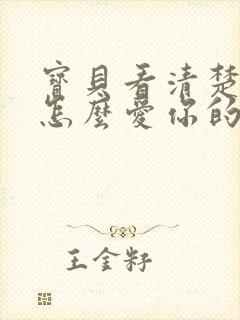 寶貝看清楚
怎麼愛你的
王金籽